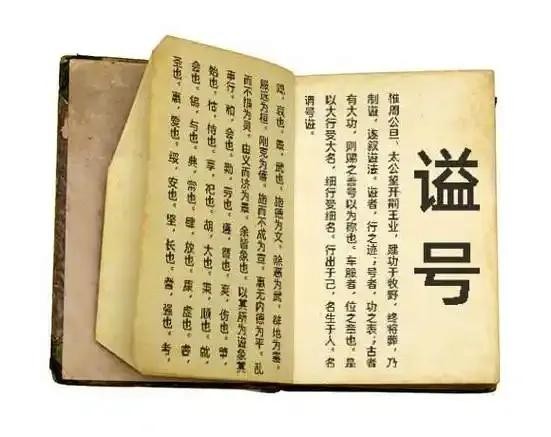 谥号
惟周公旦、太公望开嗣王业，建功于牧野，终将葬，乃
制谥，遂叙谥法。谥者，行之迹；号者，功之表；古者
有大功，则赐之善号以为称也。车服者，位之章也。是
以大行受大名，细行受细名。行出于己，名生于人。名
谓号谥。
隐，哀也。景，武也。施德为文。除恶为武。辟地为襄。
服远为桓。刚克为僖。施而不成为宣。惠无内德为平。乱
而不损为灵。由义而济为景。余皆象也。以其所为谥象其
事行。和，会也。勤，劳也。遵，循也。爽，伤也。肇，
始也。怙，恃也。享，祀也。胡，大也。秉，顺也。就，
会也。锡，与也。典，常也。肆，放也。康，虚也。睿，
圣也。惠，爱也。绥，安也。坚，长也。耆，强也。考，